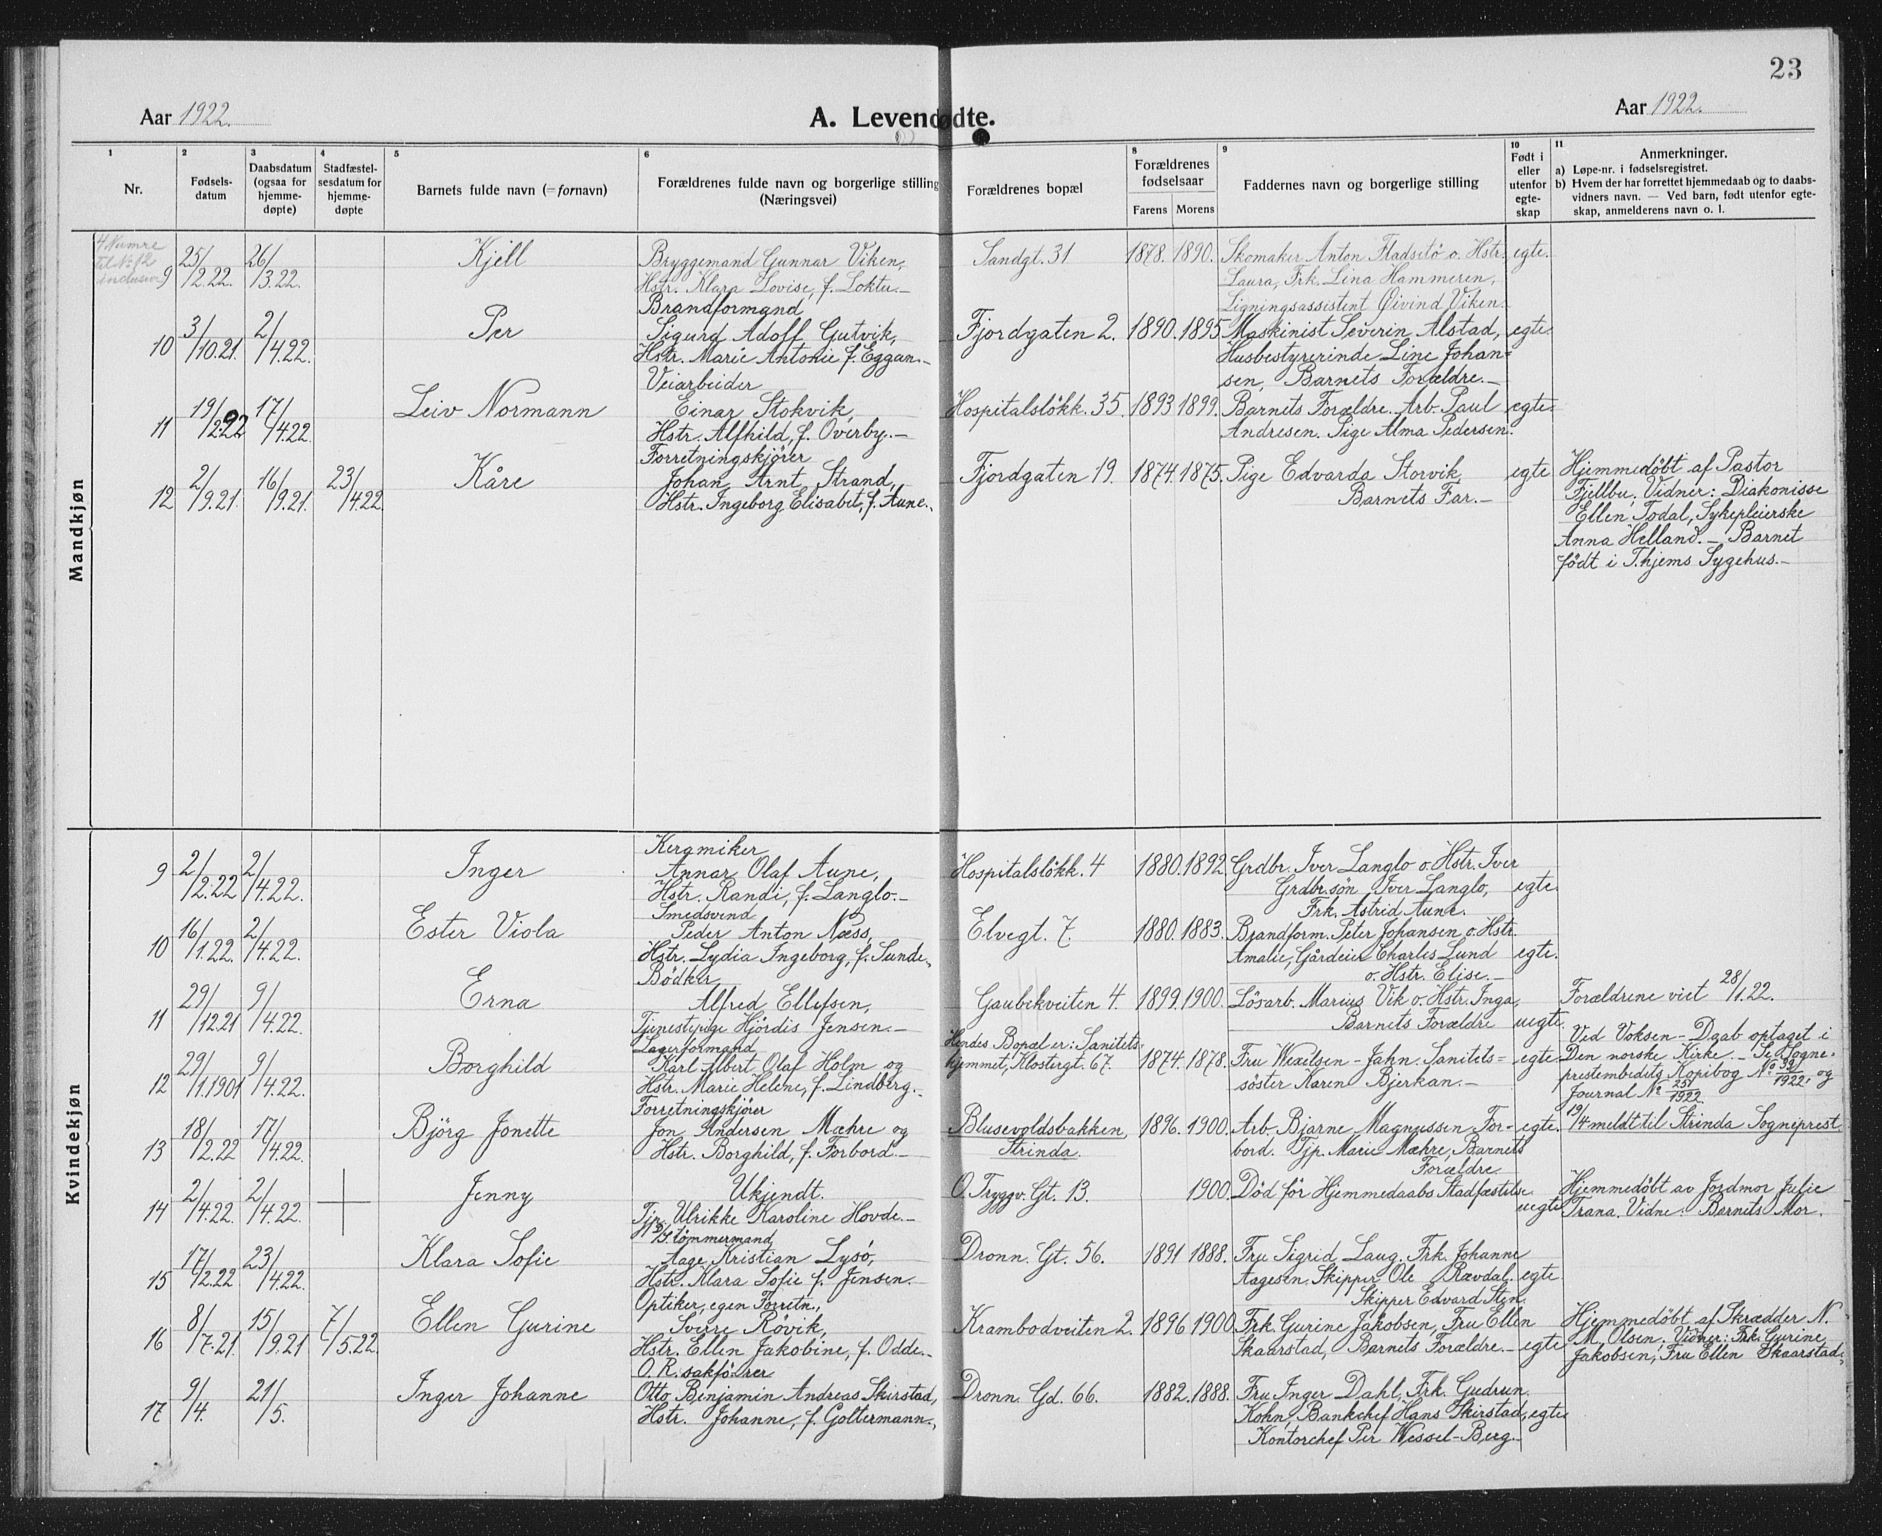 23
Aar 1922.
A. Levendødte.
Aar 1922.
1 Nr.
2 Fødselsdatum
3 Daabsdatum (ogsaa for hjemmedøpte)
4 Stadfæstelsesdatum for hjemmedøpte
5 Barnets fulde navn (= fornavn)
6 Forældrenes fulde navn og borgerlige stilling (Næringsvei)
Forældrenes bopæl
8 Forældrenes fødselsaar
Farens Morens
9 Faddernes navn og borgerlige stilling
10 Født i eller utenfor egteskap
11 Anmerkninger.
a) Løpe-nr. i fødselsregistret.
b) Hvem der har forrettet hjemmedaab og to daabsvidners navn. — Ved barn, født utenfor egteskap, anmelderens navn o. l.
Mandkjøn
4 Numre
til No 12
inclusive
9 25/2.22. 26/3.22. Kjell
Bryggemand Gunnar Viken,
Hstr. Klara Lovise, f. Loktu.—
Sandgt. 31 1878. 1890.
Skomaker Anton Fladsetö o. Hstr.
Laura, Frk. Lina Hammeren,
Ligningsassistent Øivind Viken.
egte.
10 3/10.21. 2/4.22. Per
Brandformand
Sigurd Adolf Gutvik,
Hstr. Marie Antonie f. Eggan.—
Fjordgaten 2. 1890. 1895.
Maskinist Severin Alstad,
Husbestyrerinde Line Johan=
sen, Barnets Forældre.—
egte
11 19/2.22 17/4.22. Leiv Normann
Veiarbeider
Einar Stokvik,
Hstr. Alfhild, f. Överby.—
Hospitalslökk. 35. 1893 1899.
Barnets Forældre. Arb. Paul
Andresen. Pige Alma Pedersen.
egte.
12 2/9.21. 16/9.21. 23/4.22. Kåre
Forretningskjører
Johan Arnt Strand,
Hstr. Ingeborg Elisabet, f. Aune.
Fjordgaten 19. 1874. 1875.
Pige Edvarda Storvik,
Barnets Far.—
egte
Hjemmedöbt af Pastor
Fjellbu. Vidner: Diakonisse
Ellen Todal, Sykepleierske
Anna Helland.— Barnet
födt i T.hjems Sygehus.—
Kvindekjøn
9 2/2.22 2/4.22. Inger
Keramiker
Annar Olaf Aune,
Hstr. Randi, f. Langlo.—
Hospitalslökk. 4 1880. 1892.
Grdbr. Iver Langlo o. Hstr. Iver
Grdbr.sön Iver Langlo,
Frk. Astrid Aune.
egte.
10 16/1.22. 2/4.22. Ester Viola
Smedsvend
Peder Anton Næss,
Hstr. Lydia Ingeborg, f. Sunde.
Elvegt. 7. 1880. 1883.
Brandform. Peter Johansen o. Hstr.
Amalie, Gårdeier Charles Lund
o. Hstr. Elise.—
egte.
11 29/12.21 9/4.22. Erna
Bödker
Alfred Ellefsen,
Tjenestepige Hjördis Jensen.—
Gaubekveiten 4. 1899. 1900.
Lösarb. Marius Vik o. Hstr. Inga,
Barnets Forældre
uegte.
Forældrene viet 28/1.22.
12 29/1.1901 9/4.22. Borghild
Lagerformand
Karl Albert Olaf Holm og
Hstr. Marie Helene, f. Lindberg.
Hendes Bopæl er: Sanitets
hjemmet, Klostergt. 67. 1874. 1878.
Fru Wexelsen-Jahn. Sanitets=
söster Karen Bjerkan.—
egte.
Ved Voksen-Daab optaget i
Den norske Kirke.— Se Sogne=
prestembedets Kopibog No 39/1922, og
Journal No 251/1922.
13 18/2.22 17/4.22. Björg Jonette
Forretningskjører
Jon Andersen Mæhre og
Hstr. Borghild, f. Forbord.—
Blusevoldsbakken,
Strinda. 1896. 1900.
Arb. Bjarne Magnussen For-
bord. Tjp. Marie Mæhre, Barnets
Forældre
egte.
19/4 meldt til Strinda Sogneprest.
14 2/4.22. 2/4.22. Jenny
Ukjendt.
Tjp. Ulrikke Karoline Hovde.—
O. Tryggv. Gt. 13. 1900.
Död för Hjemmedaabs Stadfæstelse
uegte
Hjemmedöbt av Jordmor Julie
Trana. Vidne: Barnets Mor.
15 17/2.22 23/4.22. Klara Sofie
tömmermand
Aage Kristian Lysö,
Hstr. Klara Sofie f. Jensen.—
Dronn. Gt. 56. 1891 1888.
Fru Sigrid Laug. Frk. Johanne
Aagesen. Skipper Ole Rævdal.
Skipper Edvard Sten.
egte
16 8/7.21. 15/9.21 7/5.22. Ellen Gurine
Optiker, egen Forretn.,
Sverre Rövik,
Hstr. Ellen Jakobine, f. Odde.—
Krambodveiten 2. 1896 1900.
Frk. Gurine Jakobsen, Fru Ellen
Skaarstad, Barnets Forældre.—
egte
Hjemmedöbt af Skrædder N.
M. Olsen. Vidner: Frk. Gurine
Jakobsen, Fru Ellen Skaarstad.
17 9/4. 21/5. Inger Johanne
O. R. sakförer
Otto Benjamin Andreas Skirstad,
Hstr. Johanne, f. Goltermann.
Dronn. Gd. 66. 1882. 1888.
Fru Inger Dahl, Frk. Gudrun
Kohn, Bankchef Hans Skirstad,
Kontorchef Per Wessel-Berg.—
egte